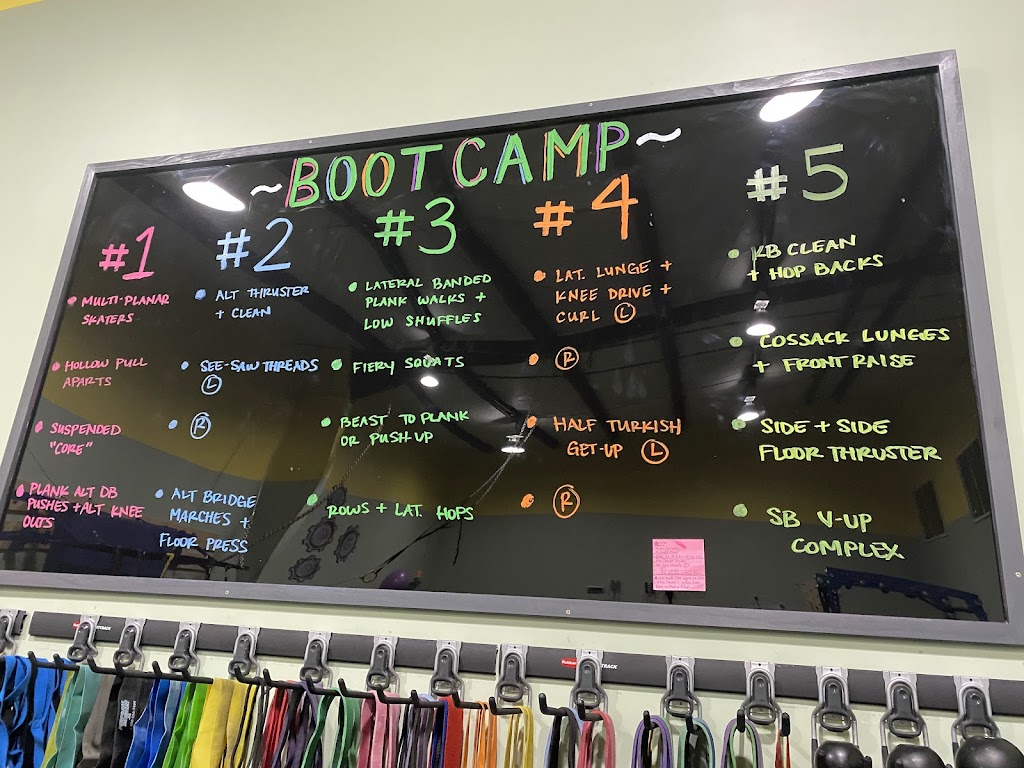 ~BOOT CAMP~
#1
MULTI-PLANAR
SKATERS
HOLLOW PULL
APARTS
SUSPENDED
"CORE"
PLANK ALT DB
PUSHES + ALT KNEE
OUTS
#2
ALT THRUSTER
+ CLEAN
SEE-SAW THREADS
L
R
ALT BRIDGE
MARCHES +
FLOOR PRESS
#3
LATERAL BANDED
PLANK WALKS +
LOW SHUFFLES
FIERY SQUATS
BEAST TO PLANK
OR PUSH UP
ROWS + LAT. HOPS
#4
LAT. LUNGE +
KNEE DRIVE +
CURL L
R
HALF TURKISH
GET-UP L
R
#5
KB CLEAN
+ HOP BACKS
COSSACK LUNGES
+ FRONT RAISE
SIDE + SIDE
FLOOR THRUSTER
SB V-UP
COMPLEX